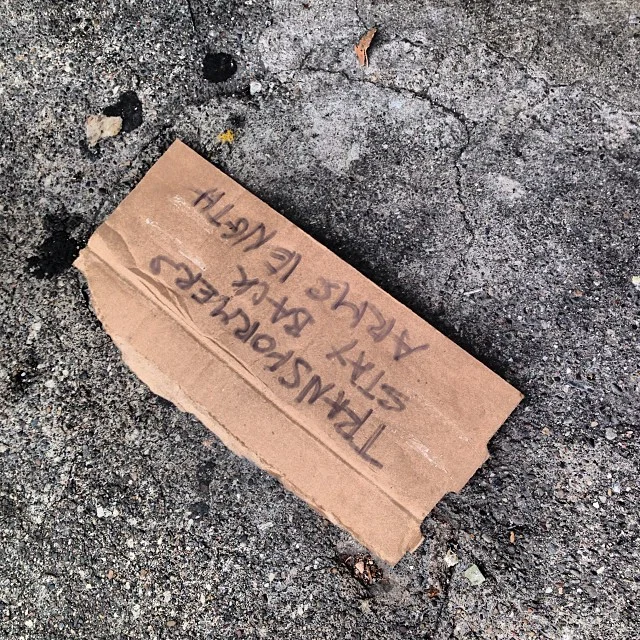 TRANSFORMERS
STAY BACK
ARMS LENGTH